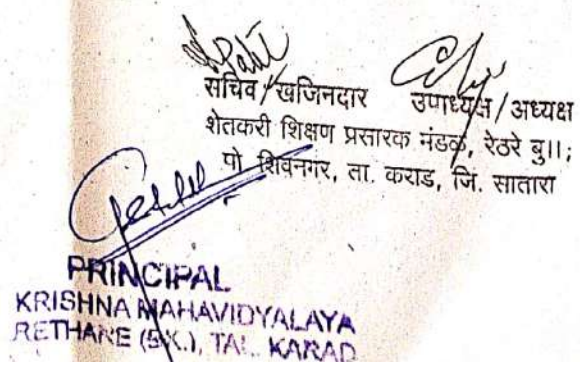 सचिव/खजिनदार उपाध्यक्ष/अध्यक्ष
शेतकरी शिक्षण प्रसारक मंडळ, रेठरे बु॥;
पो. शिवनगर, ता. कराड, जि. सातारा
PRINCIPAL
KRISHNA MAHAVIDYALAYA
RETHARE (BK.), TAL. KARAD